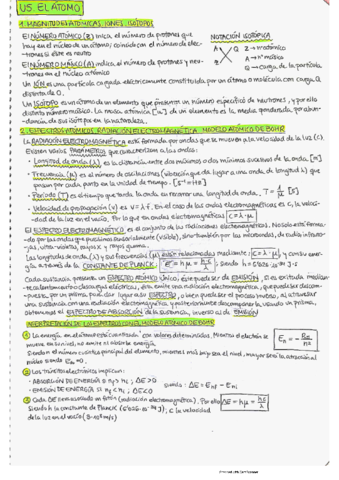 U5. EL ÁTOMO
1. MAGNITUDES ATÓMICAS, IONES, ISÓTOPOS
El NÚMERO ATÓMICO (Z) indica el número de protones que
hay en el núcleo de un átomo, coincide con el número de elec-
trones si éste es neutro
El NÚMERO MÁSICO (A) indica el número de protones y neu-
trones en el núcleo atómico
NOTACIÓN ISOTÓPICA
A X Q
Z
Z → nº atómico
A → nº másico
Q → carga de la partícula
Un IÓN es una partícula cargada eléctricamente constituida por un átomo o molécula con carga Q
distinta de 0.
Un ISÓTOPO es un átomo de un elemento que presenta un número específico de neutrones, y por ello
distinto número másico. La masa atómica [u] de un elemento es la media ponderada por abun-
dancia, de sus isótopos en la naturaleza.
2. ESPECTROS ATÓMICOS. RADIACIÓN ELECTROMAGNÉTICA. MODELO ATÓMICO DE BOHR
La RADIACIÓN ELECTROMAGNÉTICA está formada por ondas que se mueven a la velocidad de la luz (c).
Existen varios PARÁMETROS que caracterizan a las ondas:
- Longitud de onda (λ) es la distancia entre dos máximos o dos mínimos sucesivos de la onda [m]
- Frecuencia (μ) es el número de oscilaciones (vibración que da lugar a una onda de longitud λ) que
pasan por cada punto en la unidad de tiempo. [s⁻¹ = Hz]
- Período (T) es el tiempo que tarda la onda en recorrer una longitud de onda, T = 1/μ [s]
- Velocidad de propagación (v) es v = λ·f. En el caso de las ondas electromagnéticas es c, la veloci-
dad de la luz en el vacío. Por lo que en ondas electromagnéticas c = λ·μ
El ESPECTRO ELECTROMAGNÉTICO es el conjunto de las radiaciones electromagnéticas. No solo está forma-
do por las ondas que precisamos sensorialmente (visible), sino también por las microondas, de radio, infrarro-
jas, ultravioletas, rayos x, rayos gamma.
Las longitudes de onda (λ) y sus frecuencias (μ) están relacionadas mediante: c = λ·μ, y con su ener-
gía a través de la CONSTANTE DE PLANCK: E = h·μ = h·c/λ Siendo h = 6'626·10⁻³⁴ J·s
Cada sustancia presenta un ESPECTRO ATÓMICO único. Este puede ser de EMISIÓN. Si es excitada median-
te calentamiento o descarga eléctrica, ésta emite una radiación electromagnética, que puede ser descom-
puesta, por un prisma, para dar lugar a este ESPECTRO, o bien puede ser el proceso inverso, al atravesar
una sustancia con una radiación electromagnética y posteriormente descomponer la usando un prisma,
obtenemos el ESPECTRO DE ABSORCIÓN de la sustancia, inverso al de EMISIÓN
INTERPRETACIÓN DE LOS ESPECTROS CON EL MODELO ATÓMICO DE BOHR
① La energía en el átomo está cuantizada, con valores determinados. Mientras el electrón se
mueva en su nivel, no emite ni absorbe energía.
Siendo n el número cuántico principal del elemento, mientras más bajo sea el nivel, mayor será la atracción al
núcleo siendo E∞ = 0.
② Los tránsitos electrónicos implican:
- ABSORCIÓN DE ENERGÍA si nf > ni ; ΔE > 0
- EMISIÓN DE ENERGÍA si nf < ni ; ΔE < 0
siendo: ΔE = Enf - Eni
③ Cada ΔE tiene asociado un fotón (radiación electromagnética). Por ello ΔE = h·μ = h·c/λ
Siendo h la constante de Planck (6'626·10⁻³⁴ J·s), c la velocidad
de la luz en el vacío (3·10⁸ m/s)